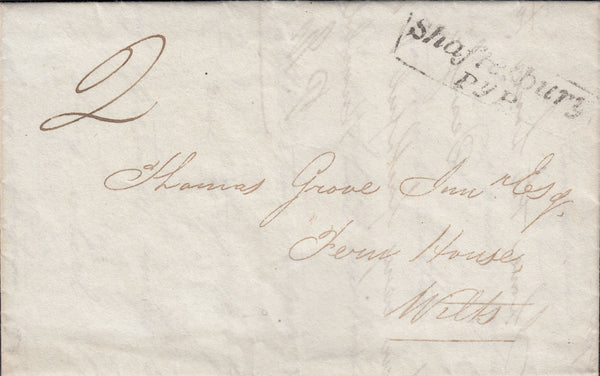 Shaftesbury
Py P
2
Thomas Grove Junr Esq,
Fern House,
Wilts